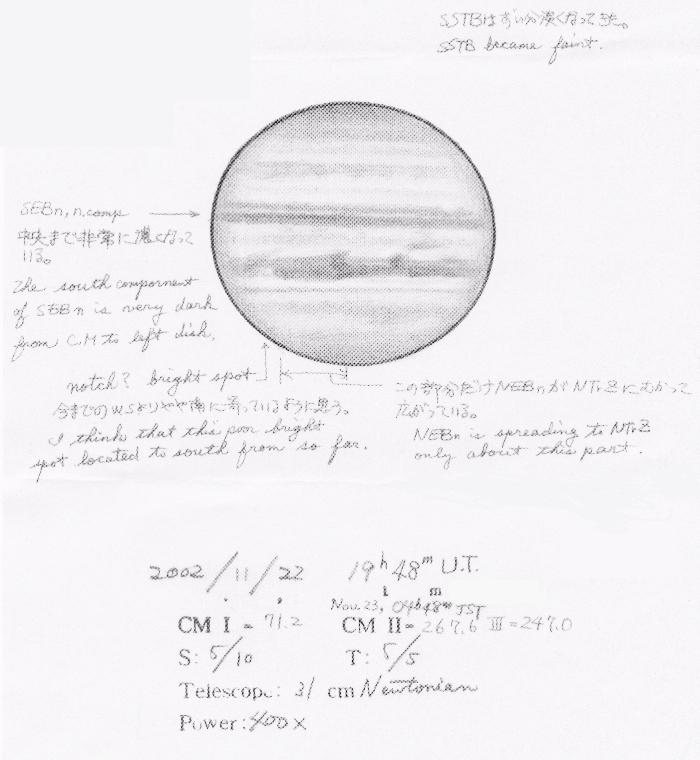 SSTBはずい分淡くなってきた。
SSTB became faint.
SEBn, n.comp
中央まで非常に濃くなって
いる。
The south compornent
of SEBn is very dark
from C.M to left dish.
notch? bright spot
今までのWSよりやや南に寄っているように思う。
I think that this poor bright
spot located to south from so far.
この部分だけNEBnがNTrZにむかって
広がっている。
NEBn is spreading to NTrZ
only about this part.
2002/11/22 19h 48m U.T.
Nov. 23, 04h48m JST
CM I = 71.2 CM II = 267.6 III = 247.0
S: 5/10 T: 5/5
Telescope: 31 cm Newtonian
Power: 400x